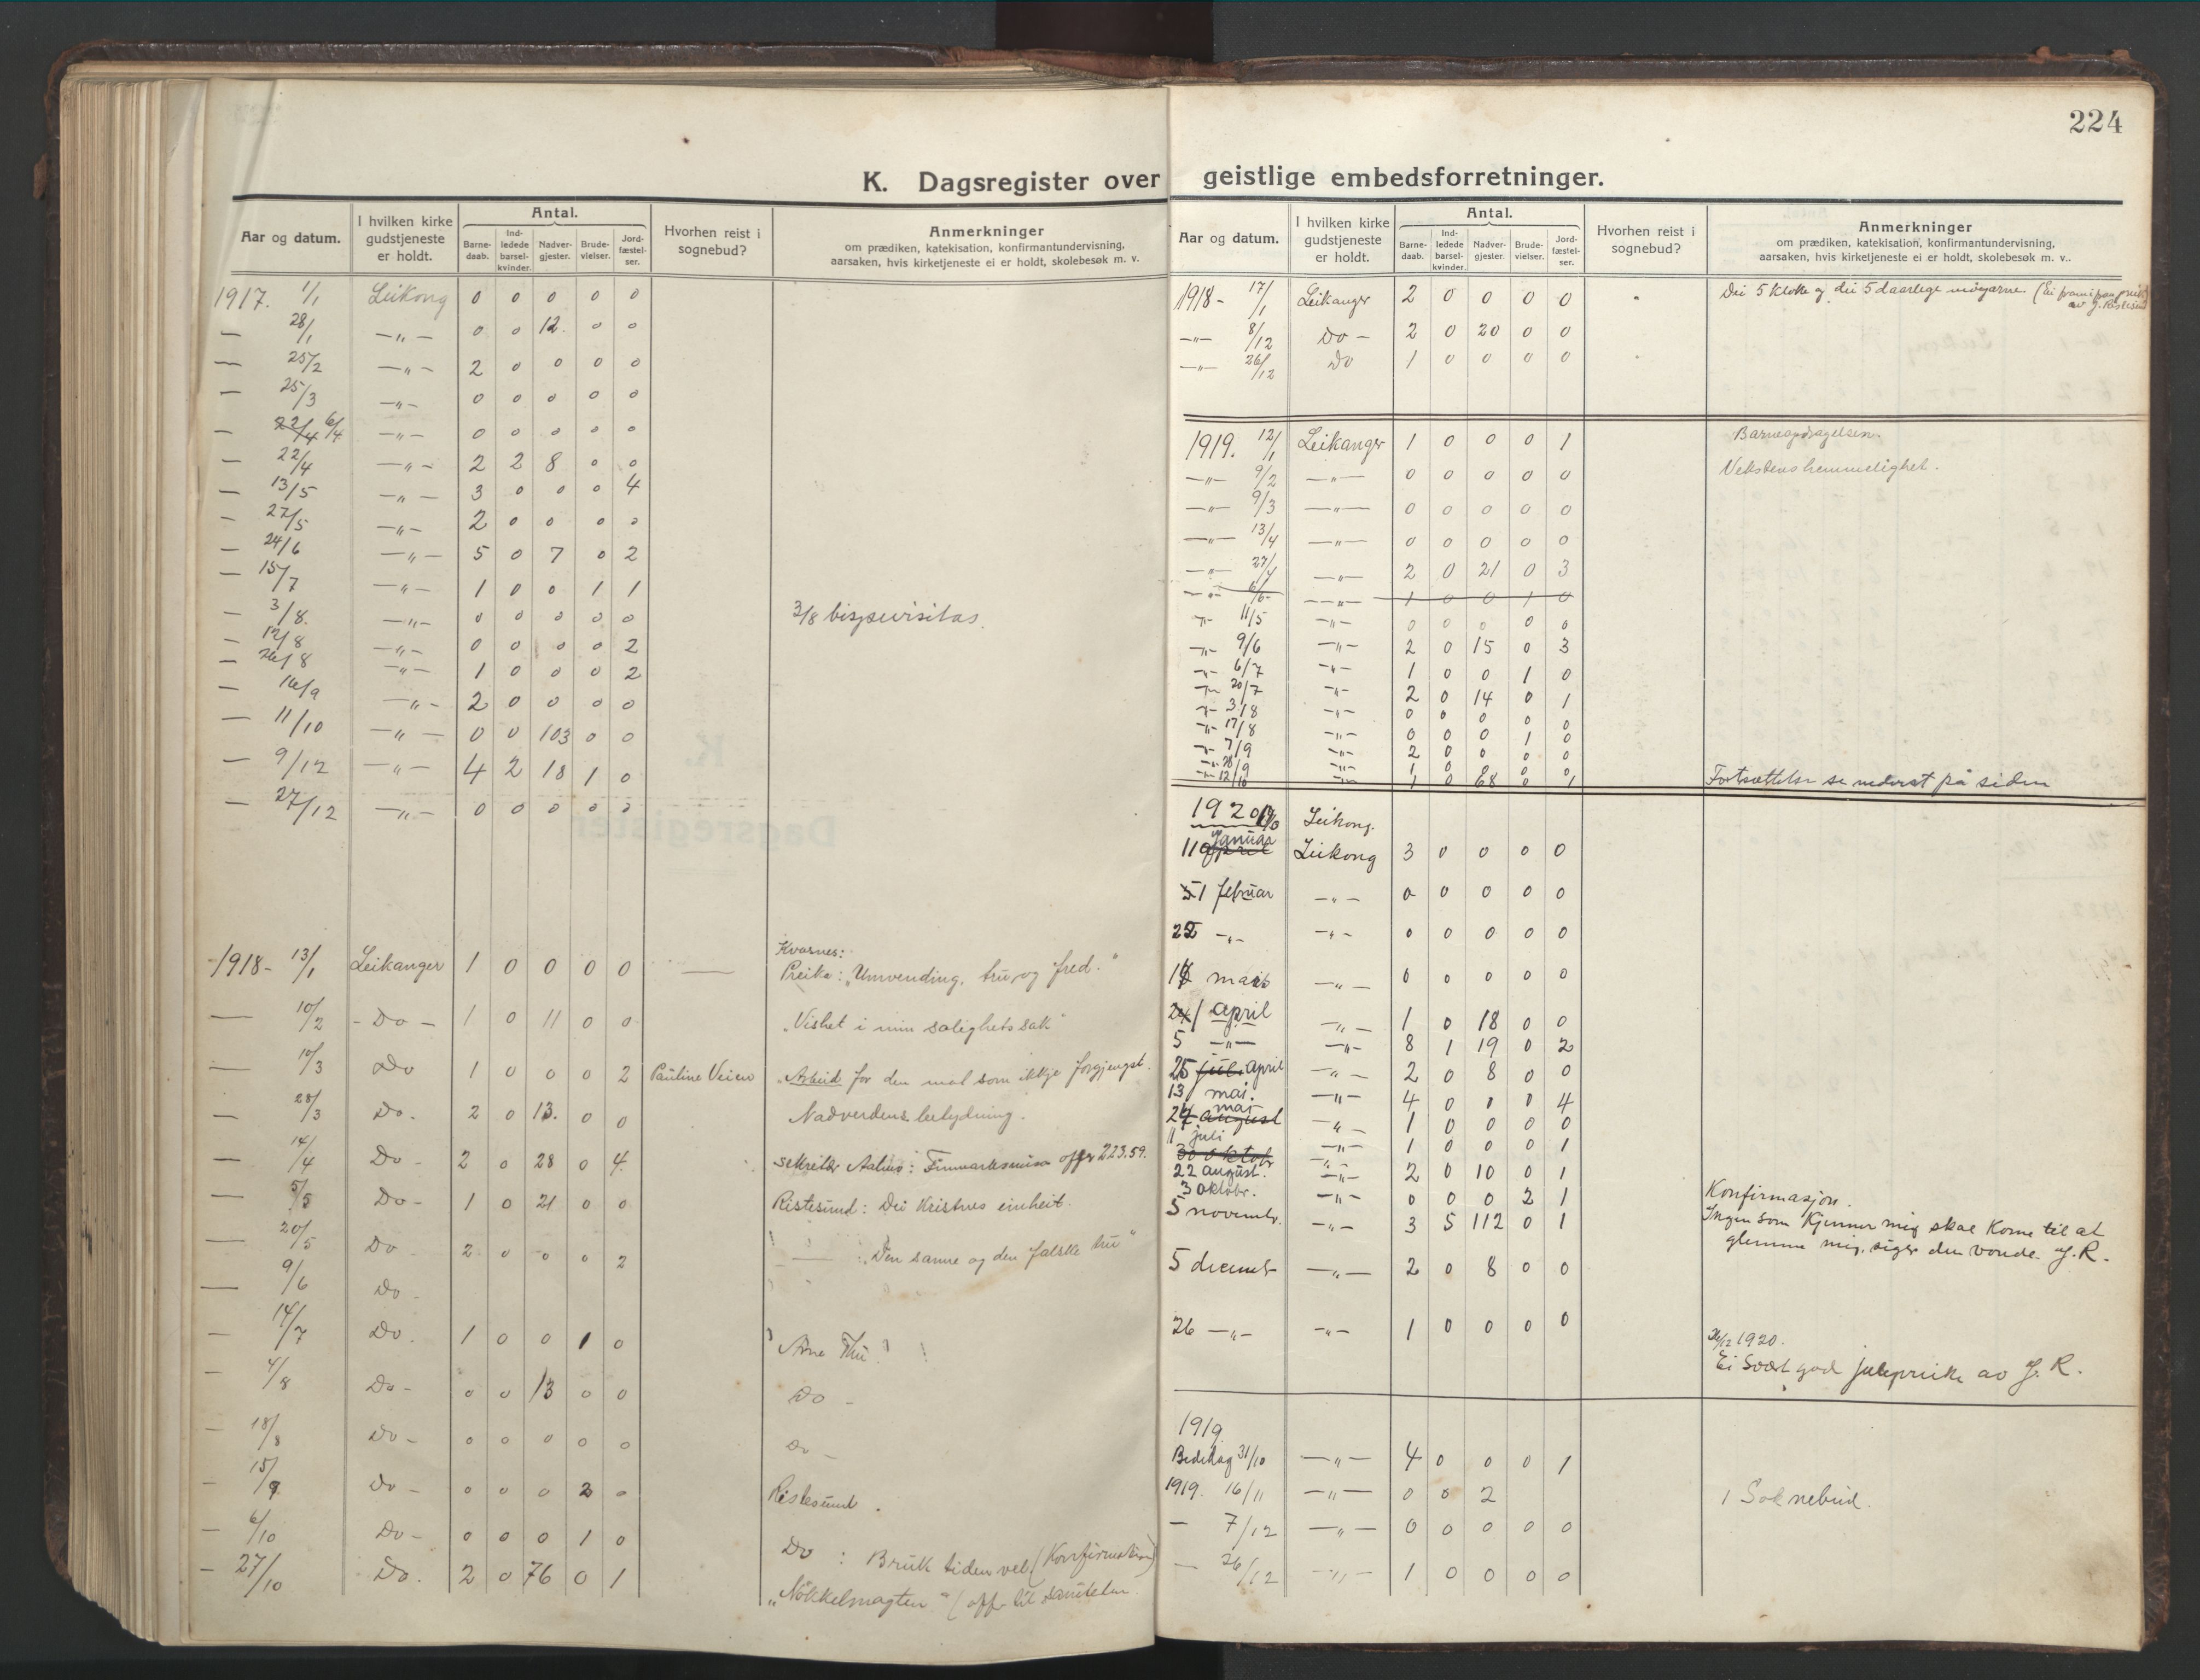 224
K. Dagsregister over geistlige embedsforretninger.
Aar og datum. I hvilken kirke gudstjeneste er holdt. Antal. Barne-daab. Ind-ledede barsel-kvinder. Nadver-gjester. Brude-vielser. Jord-fæstel-ser. Hvorhen reist i sognebud? Anmerkninger om prædiken, katekisation, konfirmantundervisning, aarsaken, hvis kirketjeneste ei er holdt, skolebesøk m. v.
1917. 1/1 Leikong 0 0 0 0 0
— 28/1 —„— 0 0 12. 0 0
— 25/2 —„— 2 0 0 0 0
— 25/3 —„— 0 0 0 0 0
— 22/4 6/4 —„— 0 0 0 0 0
— 22/4 —„— 2 2 8 0 0
— 13/5 —„— 3 0 0 0 4
— 27/5 —„— 2 0 0 0 0
— 24/6 —„— 5 0 7 0 2
— 15/7 —„— 1 0 0 1 1
— 3/8. —„— 0 0 0 0 0 3/8 bispevisitas.
— 12/8 —„— 0 0 0 0 2
— 26/8 —„— 1 0 0 0 2
— 16/9 —„— 2 0 0 0 0
— 11/10 —„— 0 0 103 0 0
— 9/12 —„— 4 2 18 1 0
— 27/12 —„— 0 0 0 0 0
Kvarnes:
1918- 13/1 Leikanger 1 0 0 0 0 — Preike: „Umvending, tru og fred."
— 10/2 -Do- 1 0 11 0 0 „Vishet i min salighets sak"
— 10/3 Do 1 0 0 0 2 Pauline Veien „Arbeid for den mat som ikkje forgjengst.
— 28/3 Do. 2 0 13. 0 0 Nadverdens betydning.
— 14/4 Do- 2 0 28 0 4. sekretær Aalnes: Finnmarksmisn offer 223.59.
— 5/5 Do- 1 0 21 0 0 Ristesund: Dei Kristnes einheit.
— 20/5 Do- 2 0 0 0 2 — : „Den sanne og den falske tru"
— 9/6 Do-
— 14/7 Do. 1 0 0 1 0 Arne Thu
— 4/8 Do- 0 0 13 0 0 Do-
— 18/8 Do- 0 0 0 0 0 Do-
— 15/9 Do- 0 0 0 2 0 Ristesund.
— 6/10 Do- 0 0 0 1 0 Do: Bruk tiden vel (Konfirmation)
- 27/10 Do. 2 0 76 0 1 „Nökkelmagten" (off- til samtelen.
Aar og datum. I hvilken kirke gudstjeneste er holdt. Antal. Barne-daab. Ind-ledede barsel-kvinder. Nadver-gjester. Brude-vielser. Jord-fæstel-ser. Hvorhen reist i sognebud? Anmerkninger om prædiken, katekisation, konfirmantundervisning, aarsaken, hvis kirketjeneste ei er holdt, skolebesøk m. v..
1918- 17/1 Leikanger 2 0 0 0 0 Dei 5 kloke og dei 5 daarlege möyarne. (Ei framifraa preik av J. Ristesund
—„— 8/12 Do- 2 0 20 0 0
—„— 26/12 Do 1 0 0 0 0
1919. 12/1 Leikanger 1 0 0 0 1 Barneopdragelsen.
—„— 9/2 —„— 0 0 0 0 0 Vekstens hemmelighet.
—„— 9/3 —„— 0 0 0 0 0
—„— 13/4 —„— 0 0 0 0 0
—„— 27/4 —„— 2 0 21 0 3
—„— 6/6- —„— 1 0 0 1 0
—„— 11/5 —„— 0 0 0 0 0
—„— 9/6 —„— 2 0 15 0 3
—„— 6/7 —„— 1 0 0 1 0
—„— 20/7 —„— 2 0 14 0 1
—„— 3/8 —„— 0 0 0 0 0
—„— 17/8 —„— 0 0 0 1 0
—„— 7/9 —„— 2 0 0 0 0
—„— 28/9 —„— 1 0 0 0 0
—„— 12/10 —„— 1 0 68 0 1 Fortsættelse se nederst på siden
1920 Leikong.
11 april januar Leikong 3 0 0 0 0
1 februar —„— 0 0 0 0 0
22 —„— —„— 0 0 0 0 0
14 mars —„— 0 0 0 0 0
2/ april —„— 1 0 18 0 0
5 —„— —„— 8 1 19 0 2
25 juli april —„— 2 0 8 0 0
13 mai. —„— 4 0 0 0 4
24 august mai —„— 1 0 0 0 0
11 juli —„— 1 0 0 0 1
30 oktob
22 august. —„— 2 0 10 0 1
3 oktobr. —„— 0 0 0 2 1 Konfirmasjon.
5 novembr. —„— 3 5 112 0 1 Ingen som Kjenner mig skal Kome til at
glemme mig, siger den vonde. J. R.
5 decembr —„— 2 0 8 0 0
26 —„— —„— 1 0 0 0 0 26/12 1920.
Ei Svært god julepreike av J. R.
1919.
Bededag 31/10 —„— 4 0 0 0 1
1919. 16/11 —„— 0 0 2 1 Soknebud.
— 7/12 —„— 0 0 0 0 0
— 26/12 —„— 1 0 0 0 0